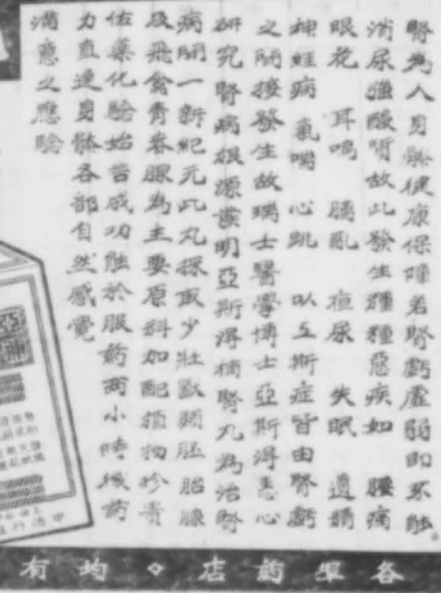 腎為人身體健康保障若腎虧虛弱即不能
消尿強酸質故此發生種種惡疾如 腰痛
眼花 耳鳴 腦亂 疸尿 失眠 遺精
神經病 氣喘 心跳 以上斯症皆由腎虧
之間接發生故瑞士醫學博士亞斯淂悉心
研究腎病根源發明亞斯淂補腎丸為治腎
病開一新紀元此丸採取少壯獸類胚胎腺
及飛禽青春腺為主要原料加配植物珍貴
佐藥化驗始告成功能於服葯兩小時後葯
力直達身體各部自然感覺
滿意之應驗
各埠葯店◇均有